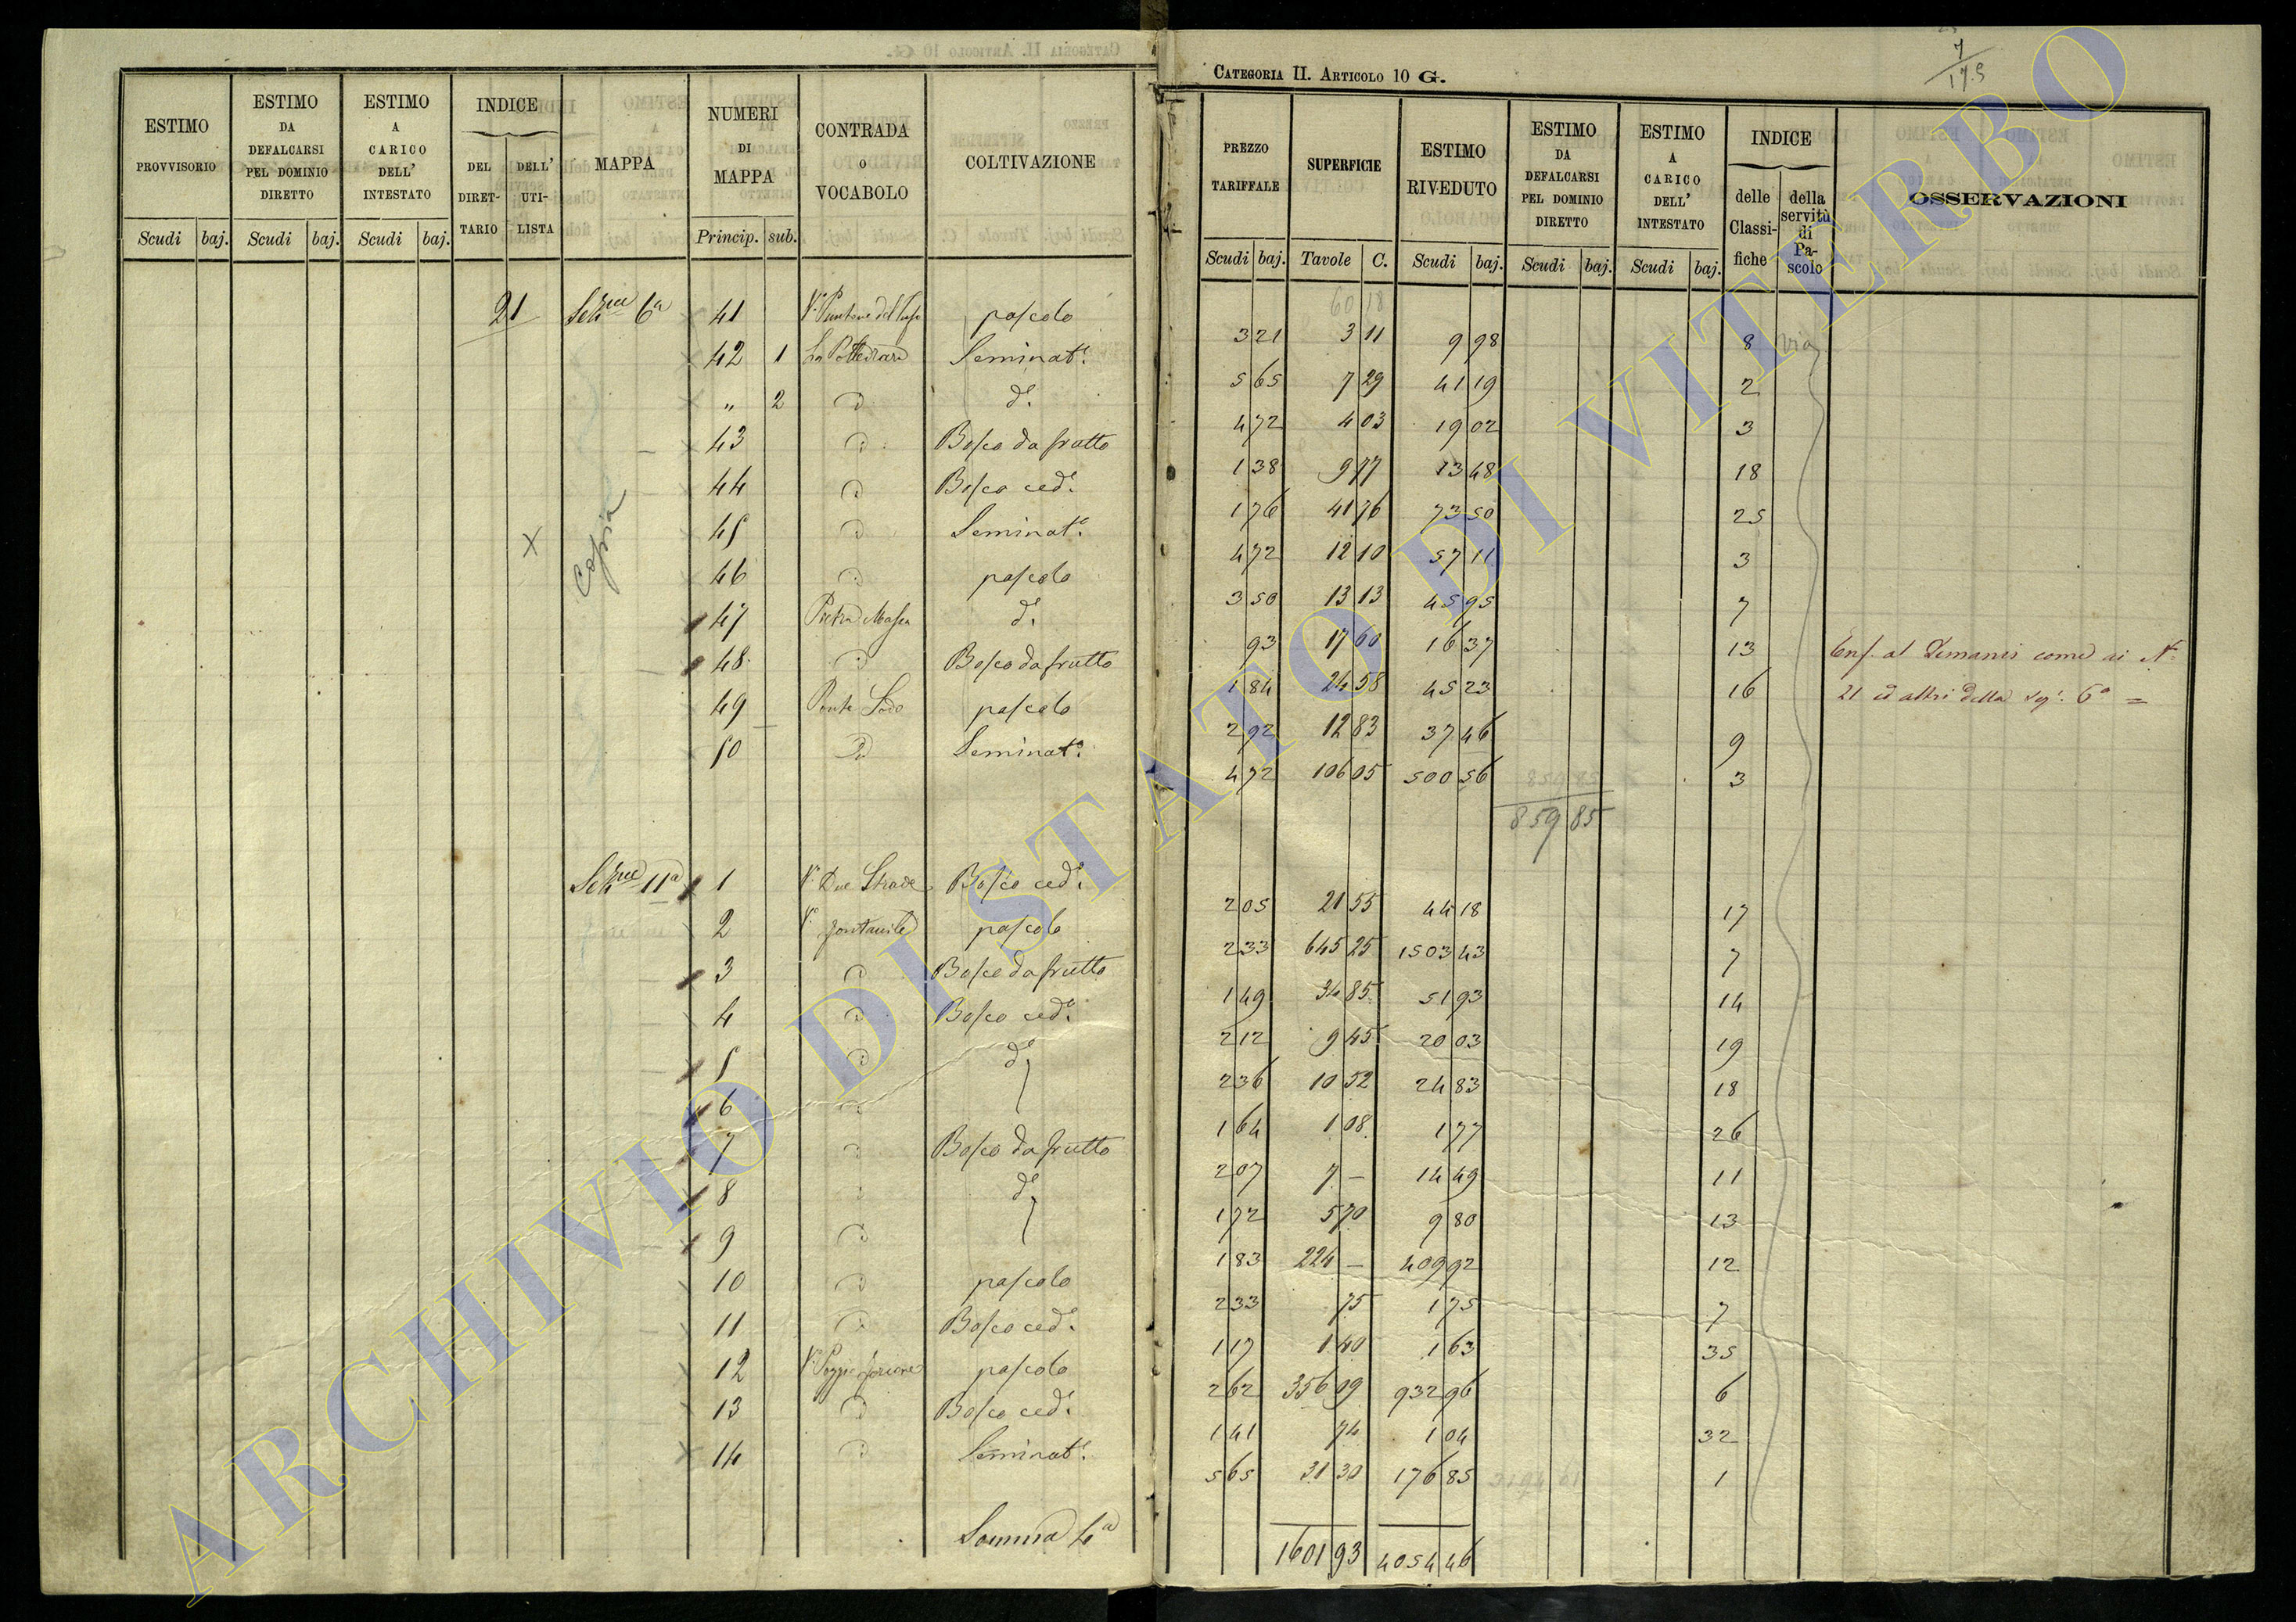 CATEGORIA II. ARTICOLO 10 G.
7
17.5
ESTIMO PROVVISORIO
ESTIMO DA DEFALCARSI PEL DOMINIO DIRETTO
ESTIMO A CARICO DELL' INTESTATO
INDICE
DEL DIRET-TARIO
DELL' UTI-LISTA
MAPPA
NUMERI DI MAPPA
CONTRADA O VOCABOLO
COLTIVAZIONE
PREZZO TARIFFALE
SUPERFICIE
ESTIMO RIVEDUTO
ESTIMO DA DEFALCARSI PEL DOMINIO DIRETTO
ESTIMO A CARICO DELL' INTESTATO
INDICE
delle Classi-fiche
della servitù di Pa-scolo
OSSERVAZIONI
Scudi baj. Scudi baj. Scudi baj. Princip. sub.
Scudi baj. Tavole C. Scudi baj. Scudi baj. Scudi baj.
60 18
21 Sez.ne 6a 41 pascolo 3 21 3 11 9 98 8 via
42 1 Seminat.o 5 65 7 29 41 19 2
" 2 d.o 4 72 4 03 19 02 3
43 Bosco da frutto 1 38 9 77 13 48 18
44 Bosco ced.o 1 76 41 76 73 50 25
45 Seminat.o 4 72 12 10 57 11 3
Copia
46 pascolo 3 50 13 13 45 95 7
47 Pietra Massa d.o 93 17 60 16 37 13 Enf. al Demanio come ai N.
48 Bosco da frutto 1 84 24 58 45 23 16 21 ed altri della Sez. 6a =
49 Ponte Sodo pascolo 2 92 12 83 37 46 9
50 Seminat.o 4 72 106 05 500 56 3
859 85
859 85
Sez.ne 11a 1 V. Due Strade Bosco ced.o 2 05 21 55 44 18 17
2 V. fontanile pascolo 2 33 645 25 1503 43 7
3 Bosco da frutto 1 49 34 85 51 93 14
4 Bosco ced.o 2 12 9 45 20 03 19
5 d.o 2 36 10 52 24 83 18
6 1 64 1 08 1 77 26
7 Bosco da frutto 2 07 7 — 14 49 11
8 d.o 1 72 5 70 9 80 13
9 1 83 224 — 409 92 12
10 pascolo 2 33 75 1 75 7
11 Bosco ced.o 1 17 1 40 1 63 35
12 pascolo 2 62 356 09 932 96 6
13 Bosco ced.o 1 41 74 1 04 32
14 Seminat.o 5 65 31 30 176 85 1
Somma 4a 1601 93 4054 46
ARCHIVIO DI STATO DI VITERBO